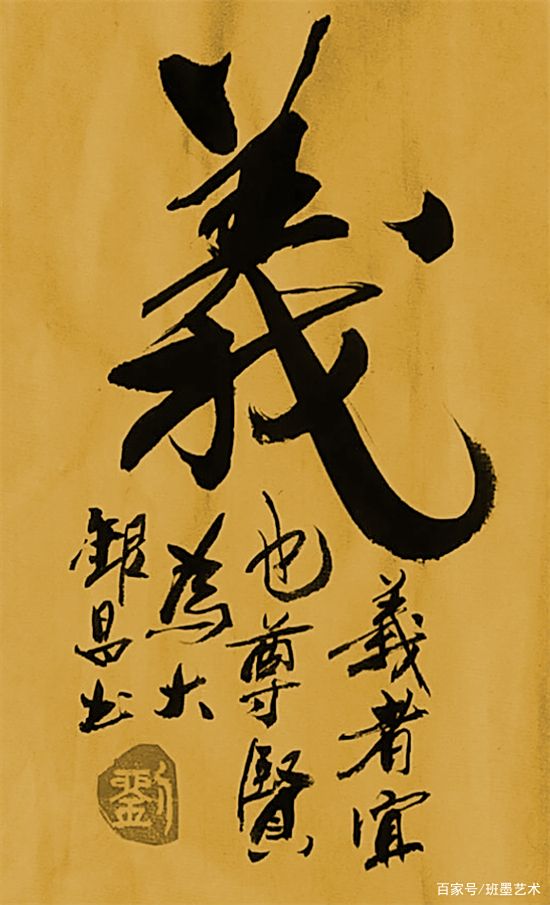 義
義者宜
也尊賢
為大
銀昌书
劉
百家号/班墨艺术